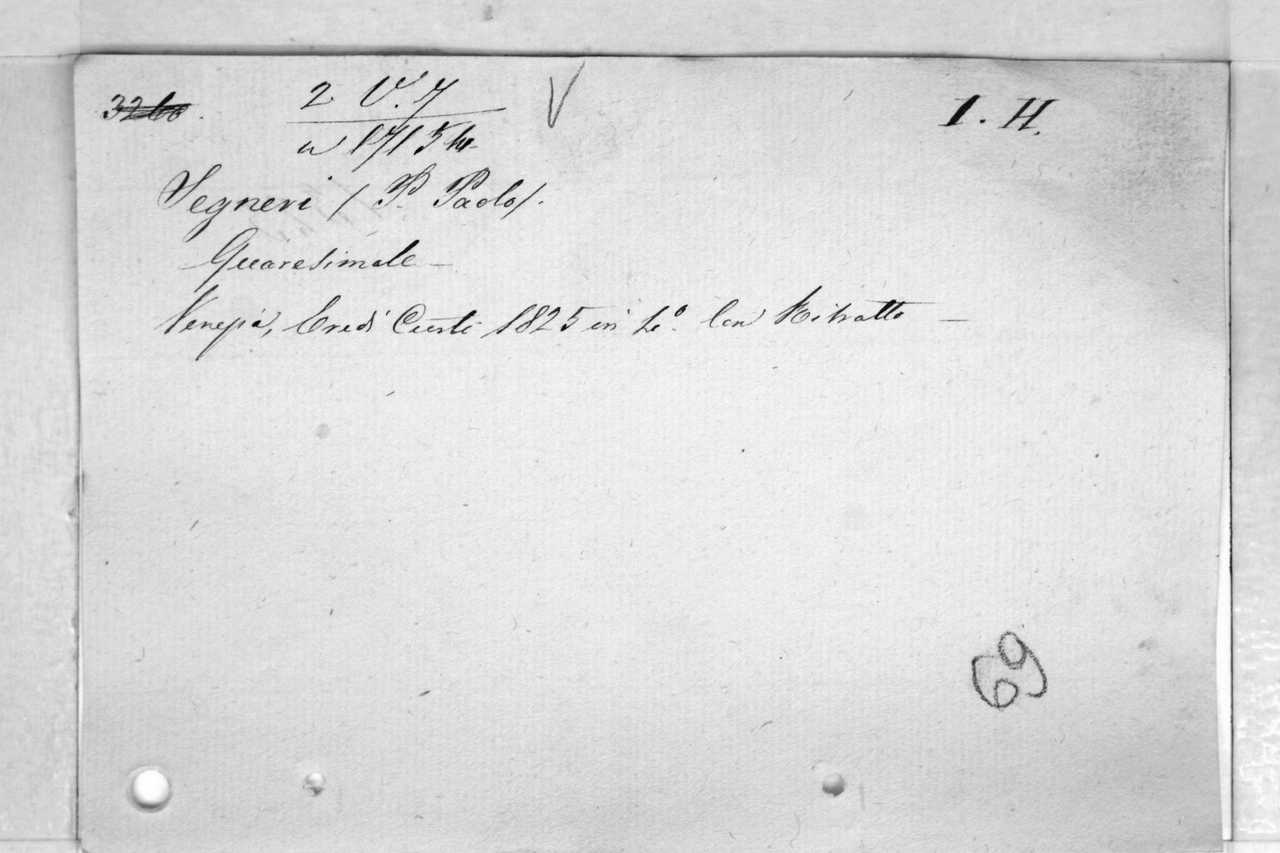 2 V. 7
I. H.
1715
Segneri / P. Paolo /.
Quaresimale —
Venezia, Eredi Curti 1825 in 4.º Con Ritratto —
69